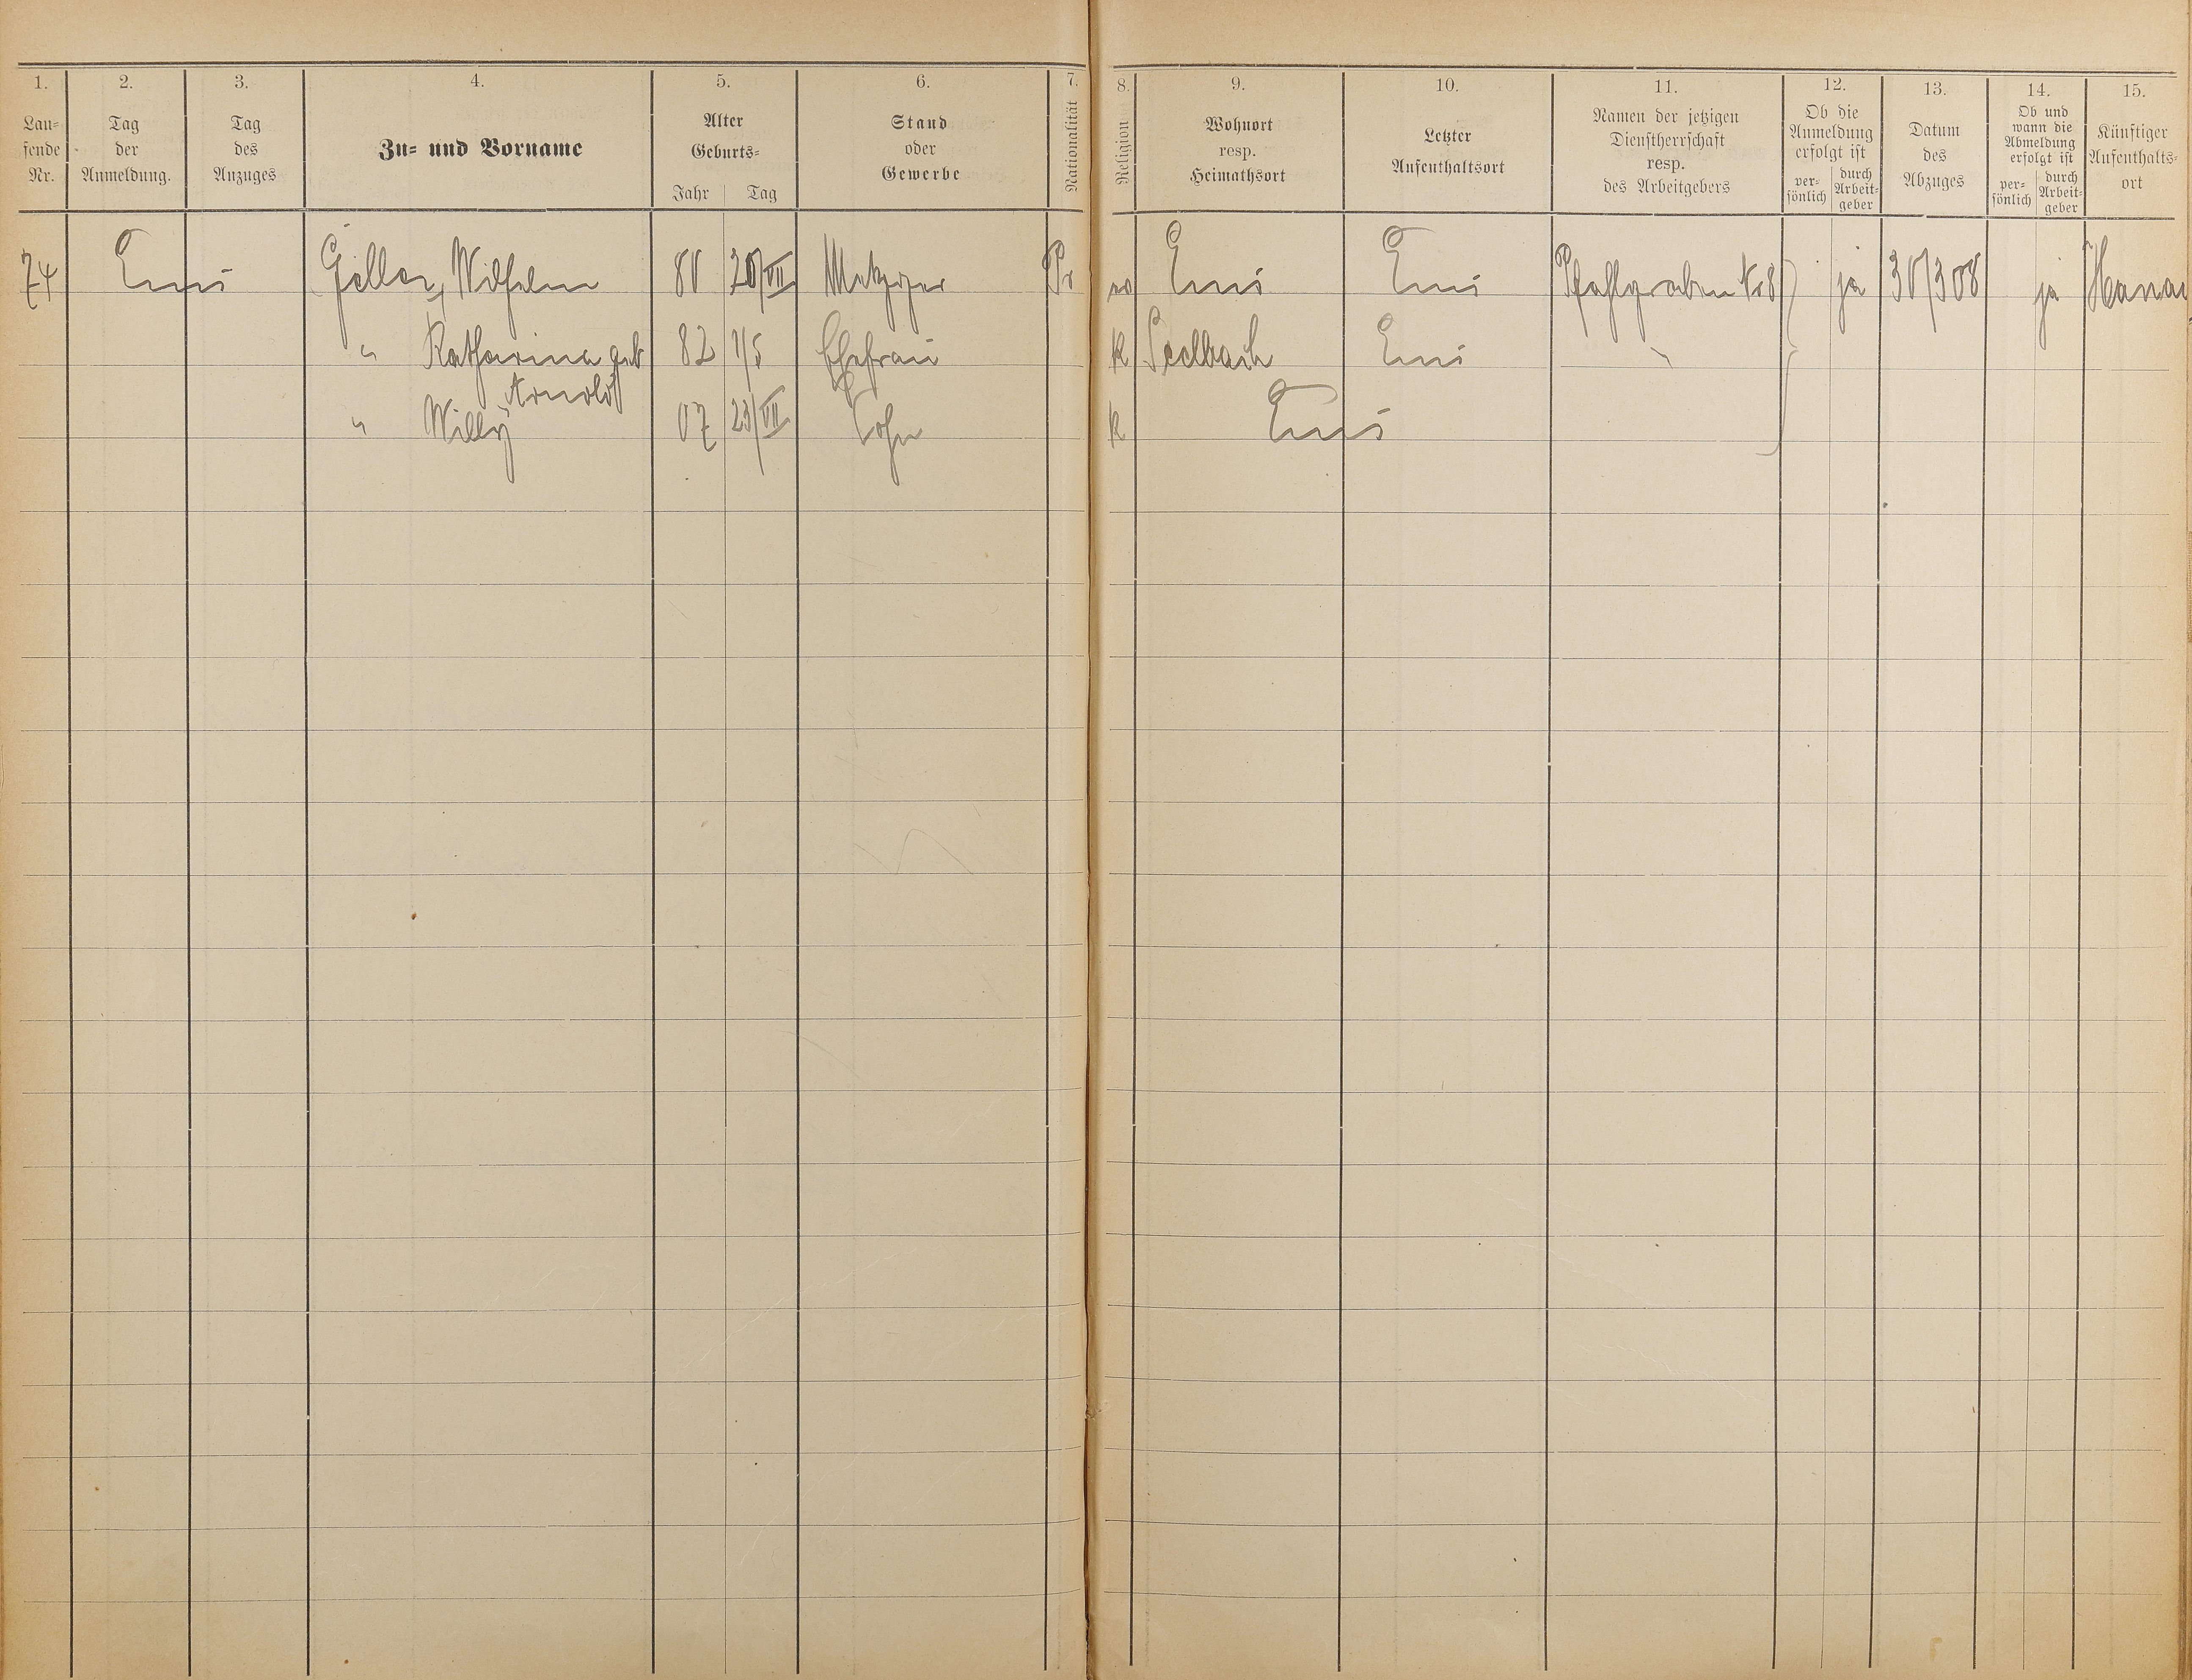 1. 2. 3. 4. 5. 6. 7. 8. 9. 10. 11. 12. 13. 14. 15.
Lau=
fende
Nr.
Tag
der
Anmeldung.
Tag
des
Anzuges
Zu= und Vorname
Alter
Geburts=
Jahr Tag
Stand
oder
Gewerbe
Nationalität
Religion
Wohnort
resp.
Heimathsort
Letzter
Aufenthaltsort
Namen der jetzigen
Dienstherrschaft
resp.
des Arbeitgebers
Ob die
Anmeldung
erfolgt ist
per=
sönlich
durch
Arbeit=
geber
Datum
des
Abzuges
Ob und
wann die
Abmeldung
erfolgt ist
per=
sönlich
durch
Arbeit=
geber
Künftiger
Aufenthalts=
ort
74 Ems Geller, Wilhelm 80 20/VII Metzger Pr ev Ems Ems Pfahlgraben No 8 ja 30/3 08 ja Hanau
" Katharina geb 82 1/5 Ehefrau k Seelbach Ems "
Arnold
" Willy 07 23/VII Sohn k Ems